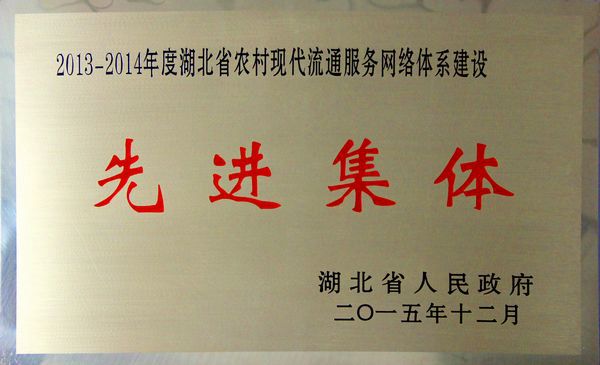 2013-2014年度湖北省农村现代流通服务网络体系建设
先进集体
湖北省人民政府
二〇一五年十二月